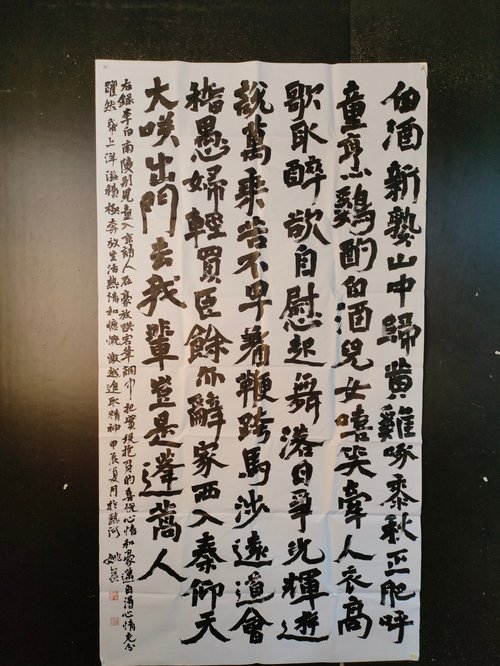 白酒新熟山中歸黃雞啄黍秋正肥呼
童烹鷄酌白酒兒女嘻笑牽人衣高
歌取醉欲自慰起舞落日爭光輝遊
說萬乘苦不早著鞭跨馬涉遠道會
稽愚婦輕買臣餘亦辭家西入秦仰天
大咲出門去我輩豈是蓬蒿人
右錄李白南陵別兒童入京詩人在豪放跌宕筆調中把實現抱負的喜悅心情和豪邁自得心情充分
躍然紙上洋溢積極奔放生活熱情和慷慨激越進取精神 甲辰夏月於熱河 姚